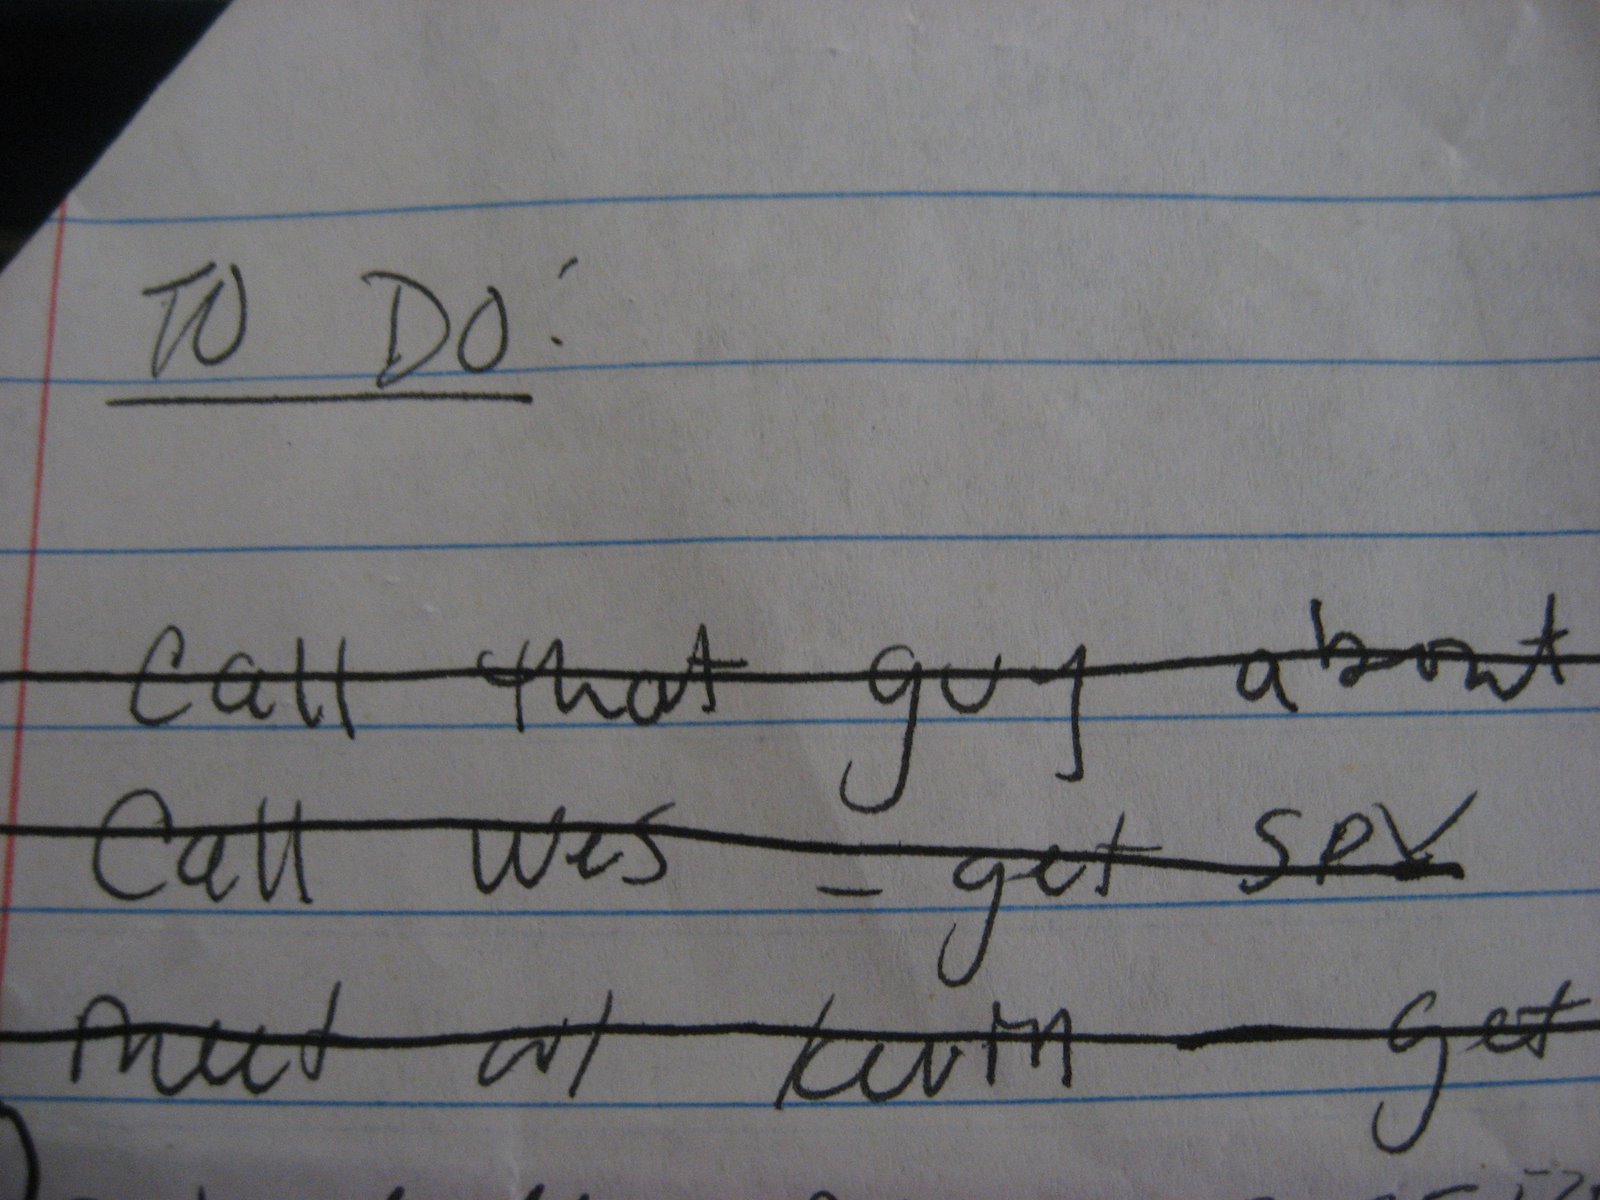 TO DO:
Call that guy about
Call Wes - get SPV
Meet w/ Kevin - get